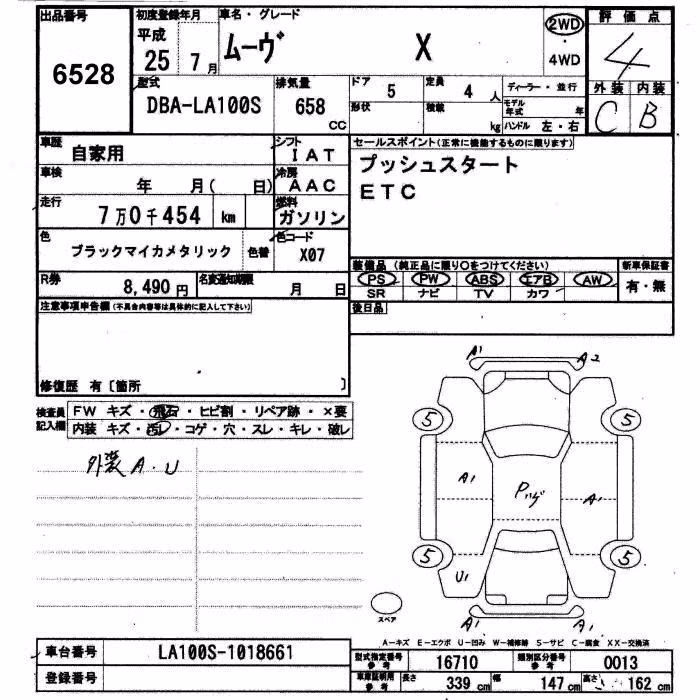 出品番号 初度登録年月 車名・グレード 2WD 評価点
平成
6528 25 7月 ムーヴ X 4WD 4
型式 排気量 ドア 5 定員 4人 ディーラー・並行 外装 内装
DBA-LA100S 658 CC 形状 積載 kg モデル年式 年 C B
ハンドル 左・右
車歴 自家用 シフト IAT セールスポイント(正常に機能するものに限ります)
車検 年 月( 日) 冷房 AAC プッシュスタート
走行 7万0千454 km 燃料 ガソリン ETC
色 ブラックマイカメタリック 色替 色コード X07
装備品 (純正品に限り〇をつけてください) 新車保証書
R券 8,490円 名変通知期限 月 日 PS PW ABS エアB AW 有・無
SR ナビ TV カワ
注意事項申告欄(不具合内容等は具体的に記入して下さい) 後日品
修復歴 有〔箇所 〕
検査員記入欄 FW キズ・飛石・ヒビ割・リペア跡・×要
内装 キズ・汚レ・コゲ・穴・スレ・キレ・破レ
外装 A・U
A1 A2
5 5
A1 Pハゲ A1
5 5
U1
A1 A1
スペア
A-キズ E-エクボ U-凹み W-補修跡 S-サビ C-腐食 XX-交換済
車台番号 LA100S-1018661 型式指定番号 参考 16710 類別区分番号 参考 0013
登録番号 車庫証明用 参考 長さ 339 cm 幅 147 cm 高さ 162 cm